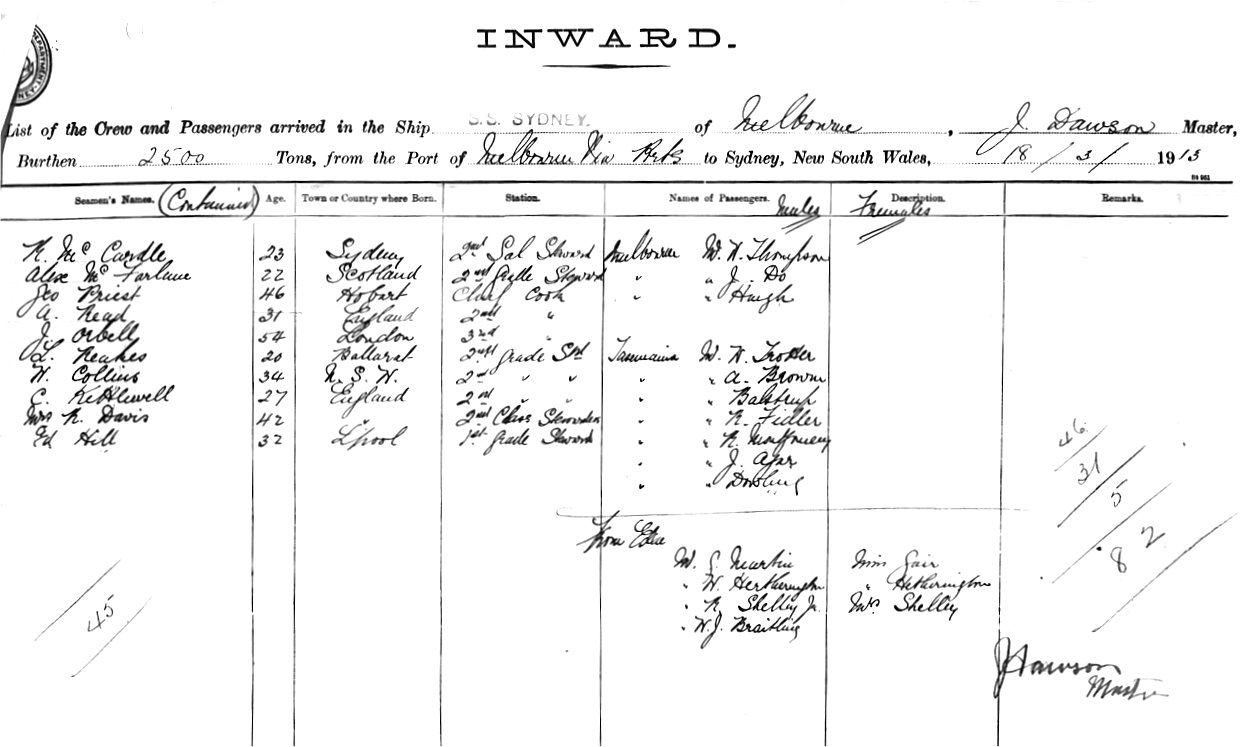 INWARD.
List of the Crew and Passengers arrived in the Ship S.S. SYDNEY. of Melbourne, J. Dawson Master,
Burthen 2500 Tons, from the Port of Melbourne Via Ports to Sydney, New South Wales, 18/3/1913
Seamen's Names. (Continued) Age. Town or Country where Born. Station. Names of Passengers. Males Description. Females Remarks.
R. Mc Cardle 23 Sydney 2nd Sal Steward Melbourne Mr. W. Thompson
Alex Mc Farlane 22 Scotland 2nd grade Steward " " J. Do
Geo Priest 46 Hobart Chief Cook " " Haigh
A. Read 31 England 2nd "
J. Orbell 54 London 3rd "
L. Reakes 20 Ballarat 2nd grade Std Tasmania Mr. H. Trotter
W. Collins 34 N. S. W. 2nd " " " " A. Browne
C. Kettlewell 27 England 2nd " " " " Balstrup
Mrs R. Davis 42 " 2nd Class Stewardess " " R. Fidler
Ed Hill 32 L'pool 1st grade Steward " " R.
" " J. Agar
" " Dowling
46
31
5
82
From Eden
Mr. G. Martin Miss Gair
" W. Hetherington " Hetherington
" R. Shelley Jr. Mrs Shelley
" W. J. Braitling
45
J Dawson
Master